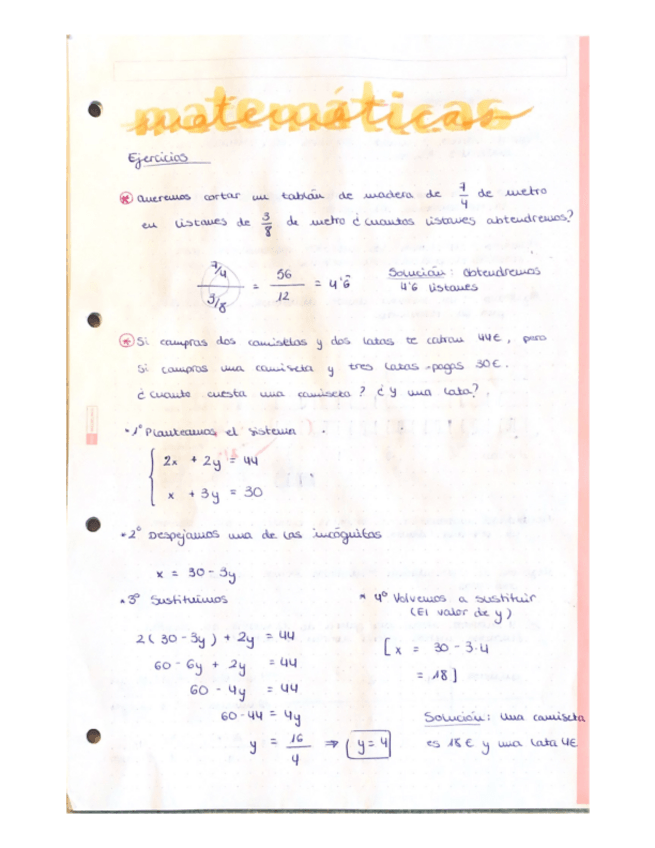 matemáticas
Ejercicios
* Queremos cortar un tablón de madera de 7/4 de metro
en listones de 3/8 de metro ¿cuantos listones obtendremos?
7/4 / 3/8 = 56/12 = 4'6̂
Solución: Obtendremos
4'6 listones
* Si compras dos camisetas y dos latas te cobran 44€, pero
si compras una camiseta y tres latas pagas 30€.
¿Cuanto cuesta una camiseta? ¿Y una lata?.
* 1º Planteamos el sistema
2x + 2y = 44
x + 3y = 30
* 2º Despejamos una de las incógnitas
x = 30 - 3y
* 3º Sustituimos
2(30-3y) + 2y = 44
60 - 6y + 2y = 44
60 - 4y = 44
60-44 = 4y
y = 16/4 ⇒ y = 4
* 4º Volvemos a sustituir
(El valor de y)
[x = 30 - 3·4
= 18]
Solución: Una camiseta
es 18€ y una lata 4€